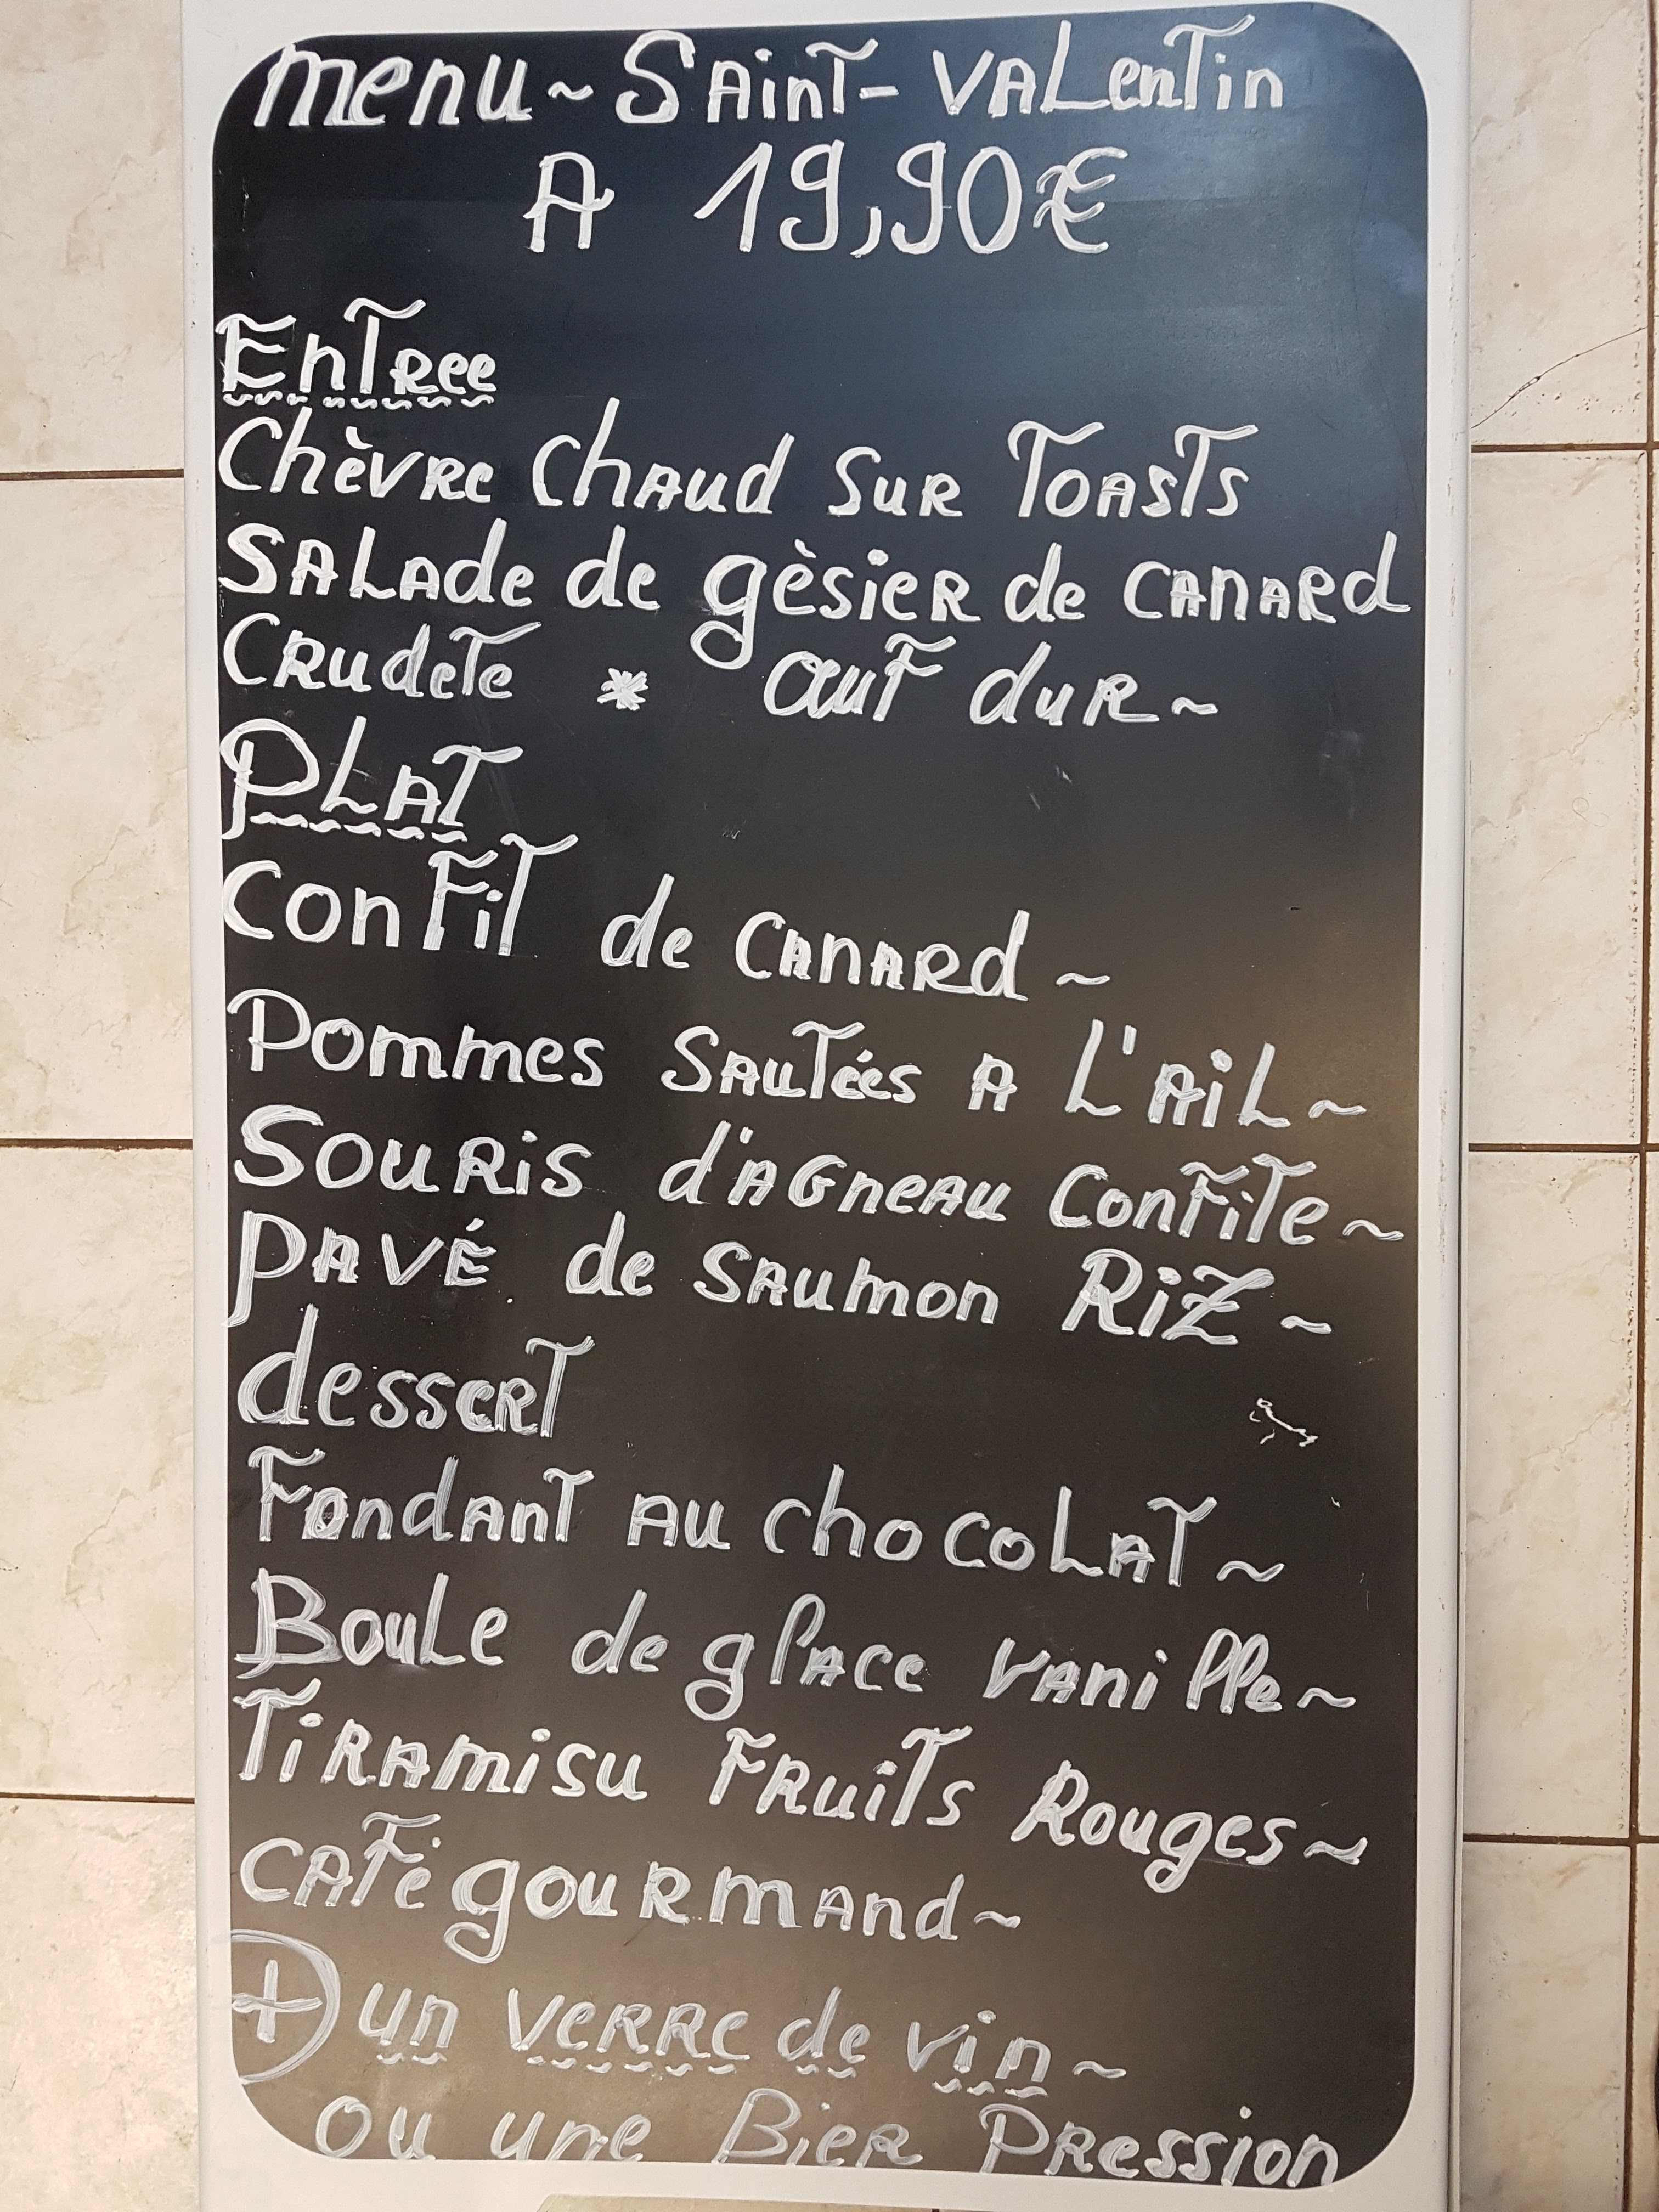 menu~Saint-Valentin
A 19,90€
Entree
Chèvre Chaud Sur Toasts
Salade de gèsier de canard
Crudete * œuf dur~
Plat
Confit de Canard~
Pommes Sautées A L'Ail~
Souris d'Agneau Confite~
Pavé de Saumon Riz~
dessert
Fondant au chocolat~
Boule de glace vanille~
Tiramisu Fruits Rouges~
Café gourmand~
+ un verre de vin~
ou une Bier Pression